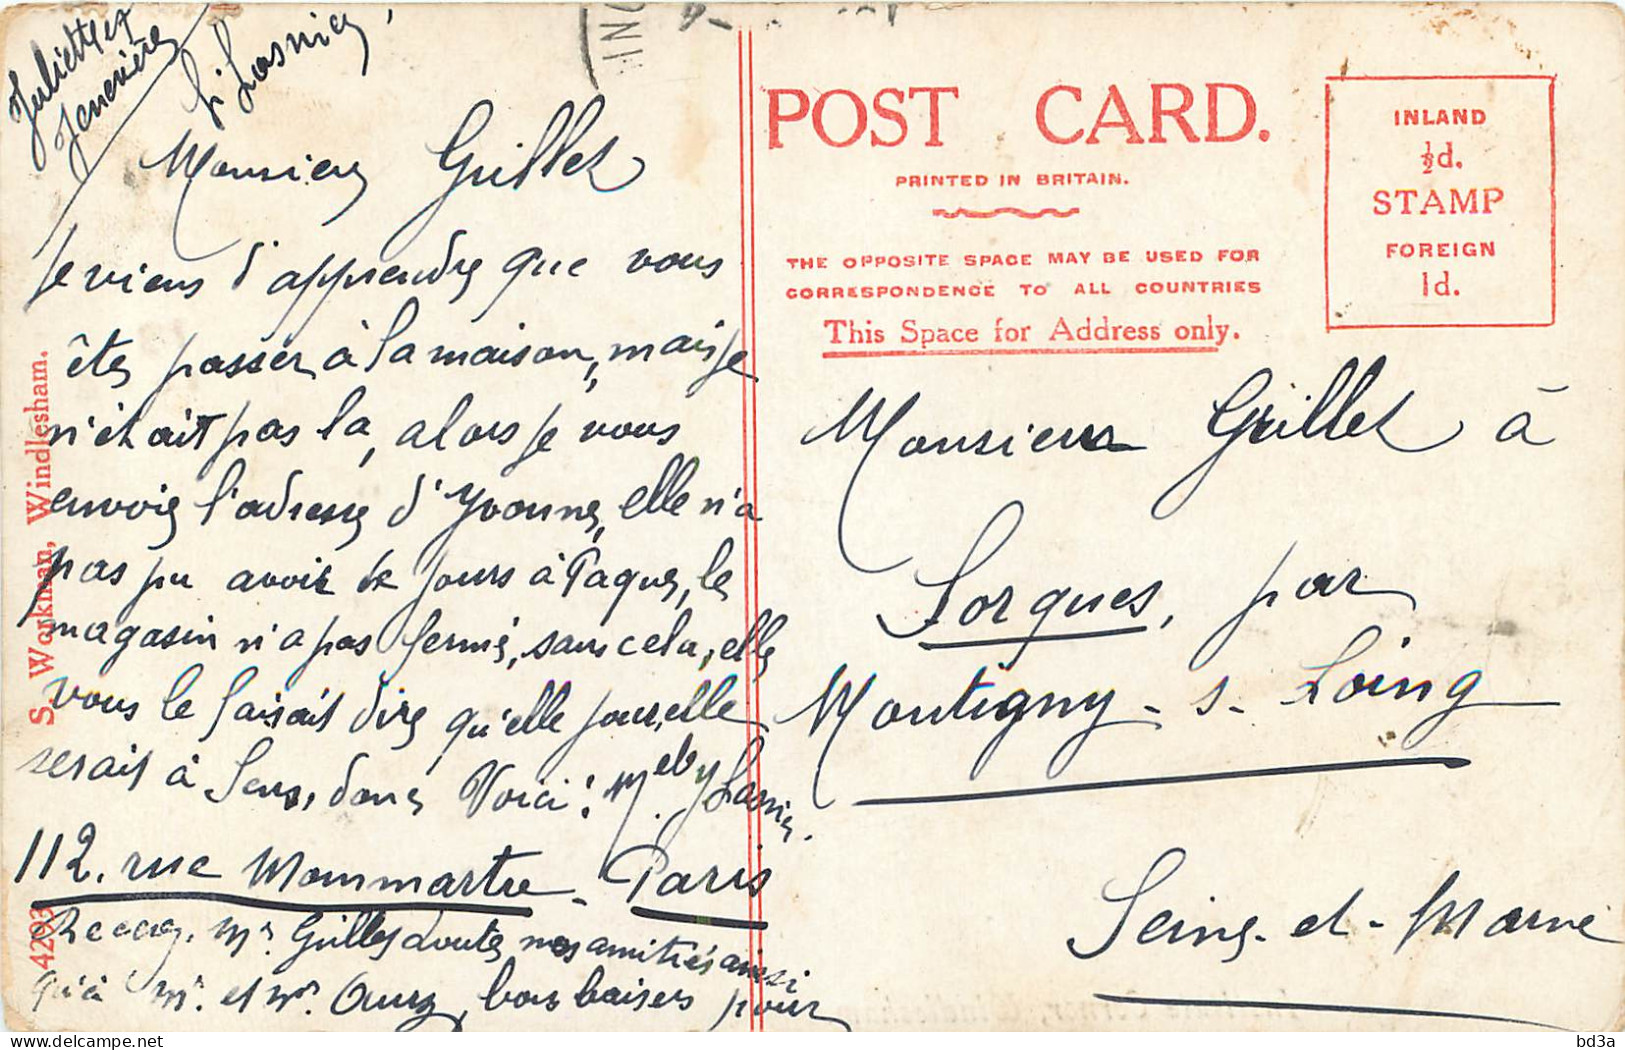 Monsieur Grillet
Je viens d'apprendre que vous
êtes passer à la maison, mais je
n'était pas la, alors je vous
envoie l'adresse d'Yvonne, elle n'a
pas pu avoir de jours à Paques, le
magasin n'a pas fermé, sans cela, elle
vous le faisait dire qu'elle jour, elle
serait à Sens, donc Voici: Melle Y Lasnier.
112. rue Mommartre - Paris
Recevez, Mr Grillet toute nos amitiés ainsi
qu'à Mr. et Mme bons baisers pour
Juliette et
Jenevière
L. Lasnier
S. Workman, Windlesham.
4203
POST CARD.
PRINTED IN BRITAIN.
THE OPPOSITE SPACE MAY BE USED FOR
CORRESPONDENCE TO ALL COUNTRIES
This Space for Address only.
INLAND
½d.
STAMP
FOREIGN
1d.
Monsieur Grillet à
Sorques, par
Montigny - s - Loing
Seine - et - Marne
bd3a